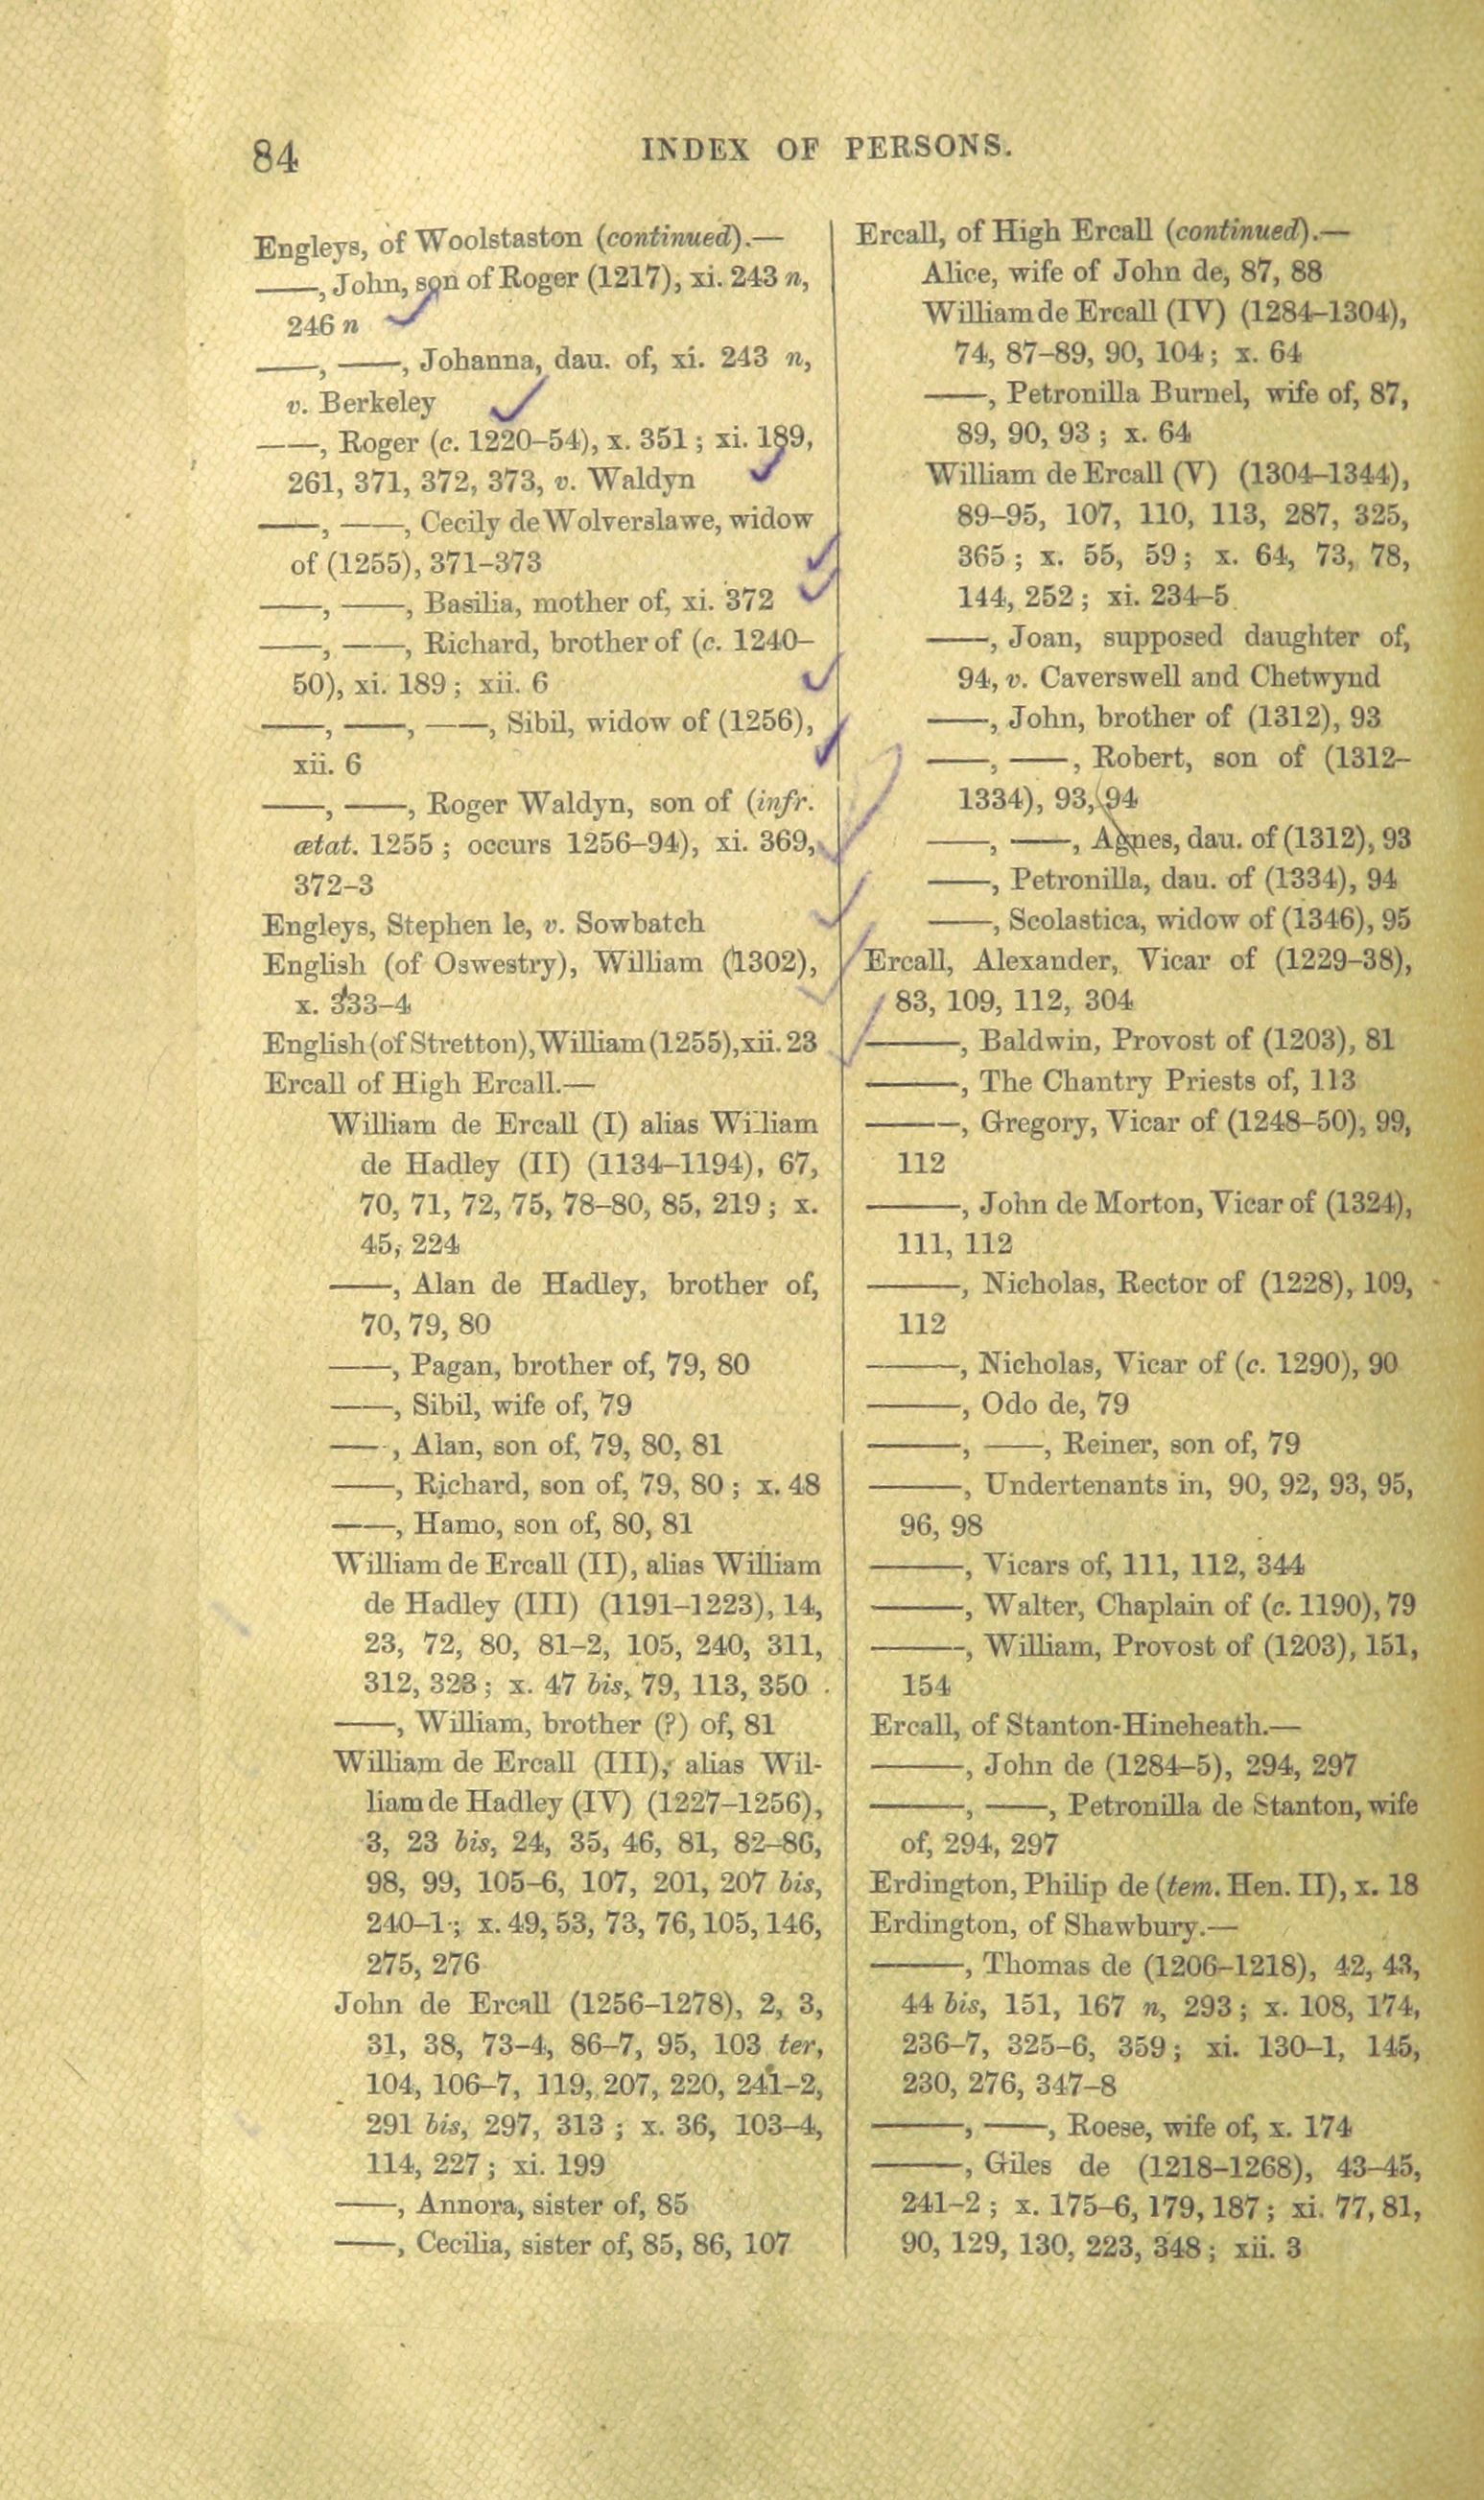 84
INDEX OF PERSONS.
Engleys, of Woolstaston (continued).—
——, John, son of Roger (1217), xi. 243 n,
246 n
——, ——, Johanna, dau. of, xi. 243 n,
v. Berkeley
——, Roger (c. 1220–54), x. 351; xi. 189,
261, 371, 372, 373, v. Waldyn
——, ——, Cecily de Wolverslawe, widow
of (1255), 371–373
——, ——, Basilia, mother of, xi. 372
——, ——, Richard, brother of (c. 1240–
50), xi. 189; xii. 6
——, ——, ——, Sibil, widow of (1256),
xii. 6
——, ——, Roger Waldyn, son of (infr.
ætat. 1255; occurs 1256–94), xi. 369,
372–3
Engleys, Stephen le, v. Sowbatch
English (of Oswestry), William (1302),
x. 333–4
English (of Stretton), William (1255), xii. 23
Ercall of High Ercall.—
William de Ercall (I) alias William
de Hadley (II) (1134–1194), 67,
70, 71, 72, 75, 78–80, 85, 219; x.
45, 224
——, Alan de Hadley, brother of,
70, 79, 80
——, Pagan, brother of, 79, 80
——, Sibil, wife of, 79
——, Alan, son of, 79, 80, 81
——, Richard, son of, 79, 80; x. 48
——, Hamo, son of, 80, 81
William de Ercall (II), alias William
de Hadley (III) (1191–1223), 14,
23, 72, 80, 81–2, 105, 240, 311,
312, 323; x. 47 bis, 79, 113, 350
——, William, brother (?) of, 81
William de Ercall (III), alias Wil-
liam de Hadley (IV) (1227–1256),
3, 23 bis, 24, 35, 46, 81, 82–86,
98, 99, 105–6, 107, 201, 207 bis,
240–1; x. 49, 53, 73, 76, 105, 146,
275, 276
John de Ercall (1256–1278), 2, 3,
31, 38, 73–4, 86–7, 95, 103 ter,
104, 106–7, 119, 207, 220, 241–2,
291 bis, 297, 313; x. 36, 103–4,
114, 227; xi. 199
——, Annora, sister of, 85
——, Cecilia, sister of, 85, 86, 107
Ercall, of High Ercall (continued).—
Alice, wife of John de, 87, 88
William de Ercall (IV) (1284–1304),
74, 87–89, 90, 104; x. 64
——, Petronilla Burnel, wife of, 87,
89, 90, 93; x. 64
William de Ercall (V) (1304–1344),
89–95, 107, 110, 113, 287, 325,
365; x. 55, 59; x. 64, 73, 78,
144, 252; xi. 234–5
——, Joan, supposed daughter of,
94, v. Caverswell and Chetwynd
——, John, brother of (1312), 93
——, ——, Robert, son of (1312–
1334), 93, 94
——, ——, Agnes, dau. of (1312), 93
——, Petronilla, dau. of (1334), 94
——, Scolastica, widow of (1346), 95
Ercall, Alexander, Vicar of (1229–38),
83, 109, 112, 304
———, Baldwin, Provost of (1203), 81
———, The Chantry Priests of, 113
———, Gregory, Vicar of (1248–50), 99,
112
———, John de Morton, Vicar of (1324),
111, 112
———, Nicholas, Rector of (1228), 109,
112
———, Nicholas, Vicar of (c. 1290), 90
———, Odo de, 79
———, ——, Reiner, son of, 79
———, Undertenants in, 90, 92, 93, 95,
96, 98
———, Vicars of, 111, 112, 344
———, Walter, Chaplain of (c. 1190), 79
———, William, Provost of (1203), 151,
154
Ercall, of Stanton-Hineheath.—
———, John de (1284–5), 294, 297
———, ——, Petronilla de Stanton, wife
of, 294, 297
Erdington, Philip de (tem. Hen. II), x. 18
Erdington, of Shawbury.—
———, Thomas de (1206–1218), 42, 43,
44 bis, 151, 167 n, 293; x. 108, 174,
236–7, 325–6, 359; xi. 130–1, 145,
230, 276, 347–8
———, ——, Roese, wife of, x. 174
———, Giles de (1218–1268), 43–45,
241–2; x. 175–6, 179, 187; xi. 77, 81,
90, 129, 130, 223, 348; xii. 3